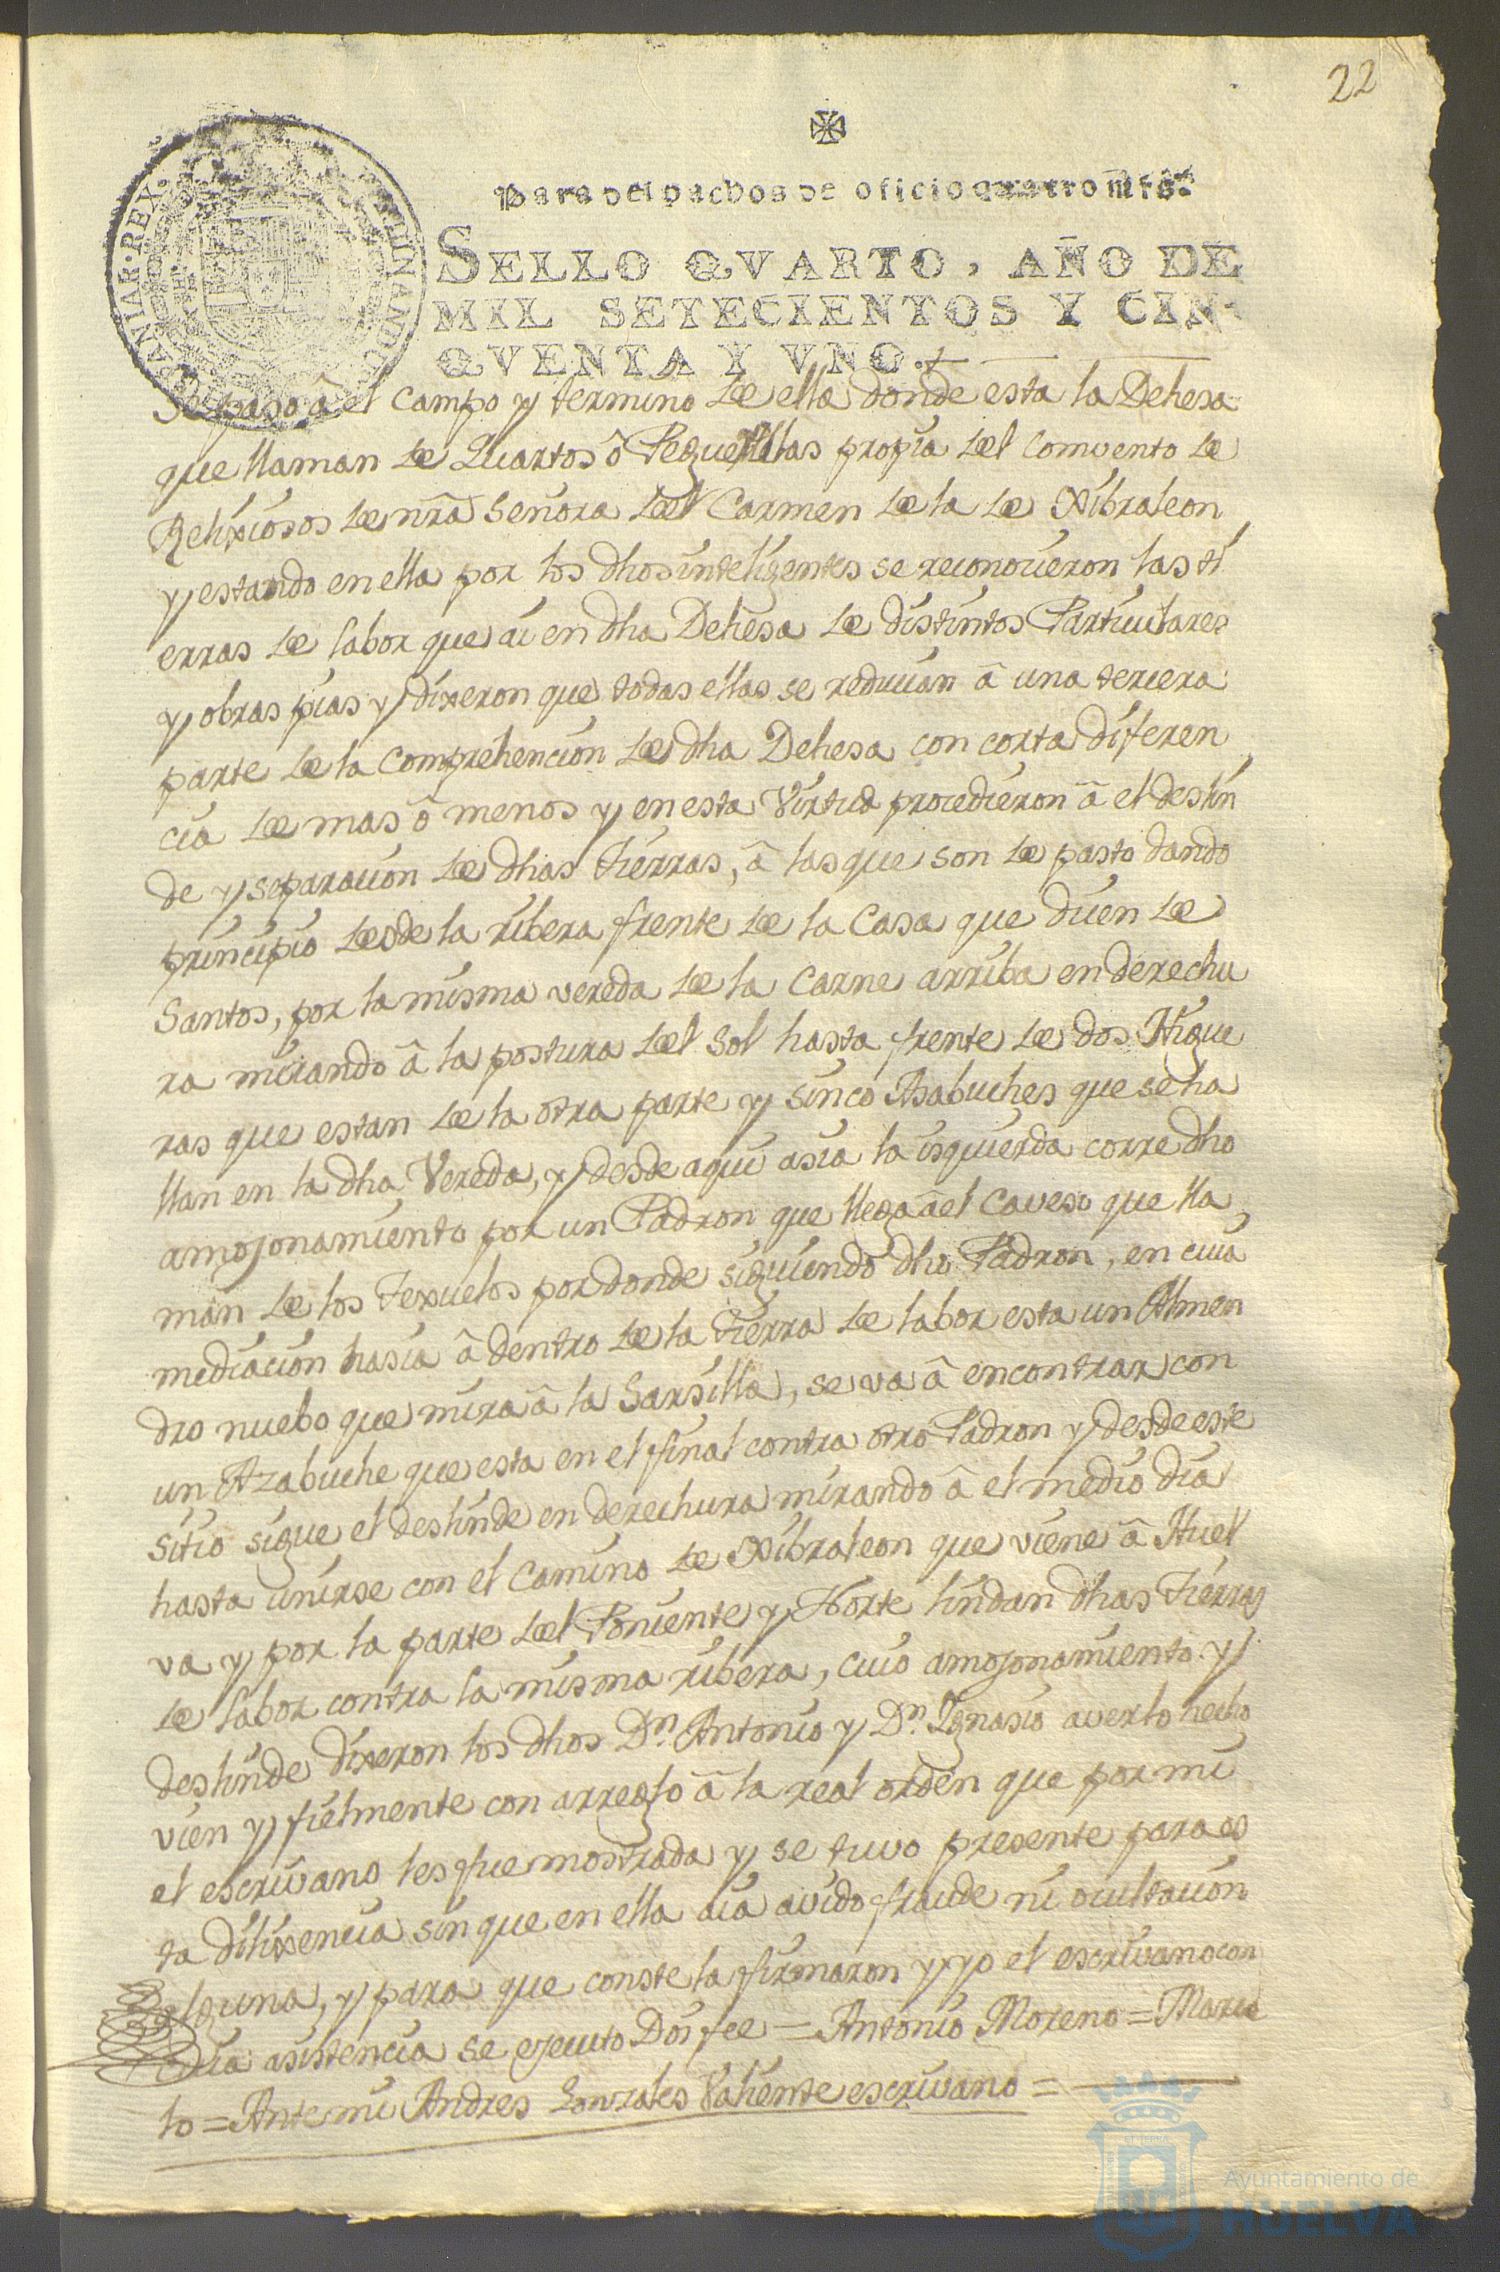 22
Para despachos de oficio quatro mrs.
SELLO QVARTO, AÑO DE
MIL SETECIENTOS Y CIN-
QVENTA Y VNO.
Se paso â el Campo y termino de ella donde esta la Dehesa
que llaman de Quartos ô Peguerillas propia del Comvento de
Relixiosos de nrâ Señora del Carmen de la de Xibraleon
y estando en ella por los dhos inteligentes se reconocieron las ti
erras de labor que ai en dha Dehesa de distintos Particulares
y obras pias y dixeron que todas ellas se reducian â una tercera
parte de la Comprehencion de dha Dehesa con corta diferen
cia de mas ô menos y en esta Virtud procedieron â el deslin
de y separacion de dhas tierras, â las que son de pasto dando
principio desde la ribera frente de la Casa que dicen de
Santos, por la misma vereda de la Carne arriba en derechu
ra mirando â la postura del Sol hasta frente de dos Higue
ras que estan de la otra parte y sinco Asabuches que se ha
llan en la dha Vereda, y desde aqui asia la isquierda corre dho
amojonamiento por un Padron que llega âel Caveso que lla
man de los Texuelos por donde siguiendo dho Padron, en cuia
mediacion hasia â dentro de la tierra de labor esta un Almen
dro nuebo que mira â la Sarsilla, se va â encontrar con
un Azabuche que esta en el final contra otro Padron y desde este
sitio sigue el deslinde en derechura mirando â el medio dia
hasta unirse con el Camino de Xibraleon que viene â Huel
va y por la parte del Poniente y Norte lindan dhas tierras
de labor contra la misma ribera, cuio amojonamiento y
deslinde dixeron los dhos Dn. Antonio y Dn. Ignasio averlo hecho
vien y fielmente con arreglo â la real orden que por mi
el escrivano les fue mostrada y se tuvo presente para es
ta dilixencia sin que en ella aia avido fraude ni ocultacion
alguna, y para que conste la firmaron y yo el escrivano con
cuia asistencia se ejecuto Doi fee = Antonio Moreno = Marce
lo = Ante mi Andres Gonzales Valiente escrivano =
Ayuntamiento de
HUELVA